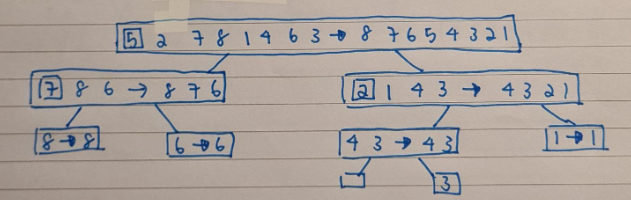 5 2 7 8 1 4 6 3 → 8 7 6 5 4 3 2 1
7 8 6 → 8 7 6 2 1 4 3 → 4 3 2 1
8 → 8 6 → 6 4 3 → 4 3 1 → 1
3